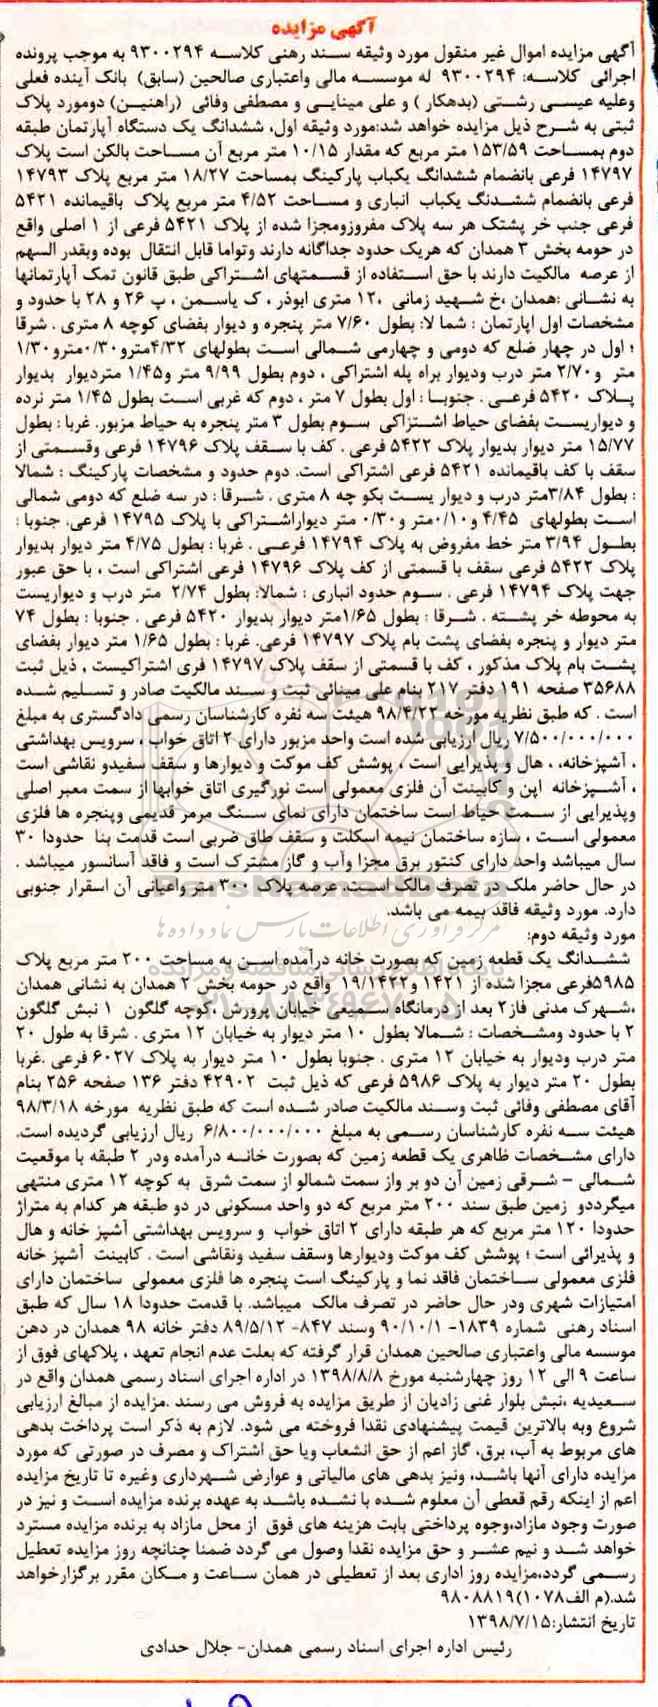 آگهی مزایده
آگهی مزایده اموال غیر منقول مورد وثیقه سند رهنی کلاسه ۹۳۰۰۲۹۴ به موجب پرونده
اجرائی کلاسه: ۹۳۰۰۲۹۴ له موسسه مالی واعتباری صالحین (سابق) بانک آینده فعلی
وعلیه عیسی رشتی (بدهکار) و علی مینایی و مصطفی وفائی (راهنین) دومورد پلاک
ثبتی به شرح ذیل مزایده خواهد شد:مورد وثیقه اول، ششدانگ یک دستگاه آپارتمان طبقه
دوم بمساحت ۱۵۳/۵۹ متر مربع که مقدار ۱۰/۱۵ متر مربع آن مساحت بالکن است پلاک
۱۴۷۹۷ فرعی بانضمام ششدانگ یکباب پارکینگ بمساحت ۱۸/۲۷ متر مربع پلاک ۱۴۷۹۳
فرعی بانضمام ششدنگ یکباب انباری و مساحت ۴/۵۲ متر مربع پلاک باقیمانده ۵۴۲۱
فرعی جنب خر پشتک هر سه پلاک مفروزومجزا شده از پلاک ۵۴۲۱ فرعی از ۱ اصلی واقع
در حومه بخش ۳ همدان که هریک حدود جداگانه دارند وتواما قابل انتقال بوده وبقدر السهم
از عرصه مالکیت دارند با حق استفاده از قسمتهای اشتراکی طبق قانون تمک آپارتمانها
به نشانی :همدان ،خ شهید زمانی ،۱۲ متری ابوذر ، ک یاسمن ، پ ۲۶ و ۲۸ با حدود و
مشخصات اول اپارتمان : شما لا: بطول ۷/۶۰ متر پنجره و دیوار بفضای کوچه ۸ متری . شرقا
؛ اول در چهار ضلع که دومی و چهارمی شمالی است بطولهای ۴/۳۲مترو۰/۳۰مترو۱/۳۰
متر و۲/۷۰ متر درب ودیوار براه پله اشتراکی ، دوم بطول ۹/۹۹ متر و۱/۴۵ متردیوار بدیوار
پلاک ۵۴۲۰ فرعی . جنوبا : اول بطول ۷ متر ، دوم که غربی است بطول ۱/۴۵ متر نرده
و دیواریست بفضای حیاط اشتزاکی سوم بطول ۳ متر پنجره به حیاط مزبور. غربا : بطول
۱۵/۷۷ متر دیوار بدیوار پلاک ۵۴۲۲ فرعی . کف با سقف پلاک ۱۴۷۹۶ فرعی وقسمتی از
سقف با کف باقیمانده ۵۴۲۱ فرعی اشتراکی است. دوم حدود و مشخصات پارکینگ : شمالا
: بطول ۳/۸۴متر درب و دیوار یست بکو چه ۸ متری . شرقا : در سه ضلع که دومی شمالی
است بطولهای ۴/۴۵ و۰/۱۰متر و۰/۳۰ متر دیواراشتراکی با پلاک ۱۴۷۹۵ فرعی. جنوبا :
بطول ۳/۹۴ متر خط مفروض به پلاک ۱۴۷۹۴ فرعی . غربا : بطول ۴/۷۵ متر دیوار بدیوار
پلاک ۵۴۲۲ فرعی سقف با قسمتی از کف پلاک ۱۴۷۹۶ فرعی اشتراکی است ، با حق عبور
جهت پلاک ۱۴۷۹۴ فرعی . سوم حدود انباری : شمالا: بطول ۲/۷۴ متر درب و دیواریست
به محوطه خر پشته . شرقا : بطول ۱/۶۵متر دیوار بدیوار ۵۴۲۰ فرعی . جنوبا : بطول ۷۴
متر دیوار و پنجره بفضای پشت بام پلاک ۱۴۷۹۷ فرعی. غربا : بطول ۱/۶۵ متر دیوار بفضای
پشت بام پلاک مذکور ، کف با قسمتی از سقف پلاک ۱۴۷۹۷ فری اشتراکیست ، ذیل ثبت
۳۵۶۸۸ صفحه ۱۹۱ دفتر ۲۱۷ بنام علی مینائی ثبت و سند مالکیت صادر و تسلیم شده
است . که طبق نظریه مورخه ۹۸/۴/۲۲ هیئت سه نفره کارشناسان رسمی دادگستری به مبلغ
۷/۵۰۰/۰۰۰/۰۰۰ ریال ارزیابی شده است واحد مزبور دارای ۲ اتاق خواب ، سرویس بهداشتی
، آشپزخانه، ، هال و پذیرایی است ، پوشش کف موکت و دیوارها و سقف سفیدو نقاشی است
، آشپزخانه اپن و کابینت آن فلزی معمولی است نورگیری اتاق خوابها از سمت معبر اصلی
وپذیرایی از سمت حیاط است ساختمان دارای نمای سنگ مرمر قدیمی وپنجره ها فلزی
معمولی است ، سازه ساختمان نیمه اسکلت و سقف طاق ضربی است قدمت بنا حدودا ۳۰
سال میباشد واحد دارای کنتور برق مجزا وآب و گاز مشترک است و فاقد آسانسور میباشد .
در حال حاضر ملک در تصرف مالک است. عرصه پلاک ۳۰۰ متر واعیانی آن اسقرار جنوبی
دارد. مورد وثیقه فاقد بیمه می باشد.
مورد وثیقه دوم:
ششدانگ یک قطعه زمین که بصورت خانه درآمده اسن به مساحت ۲۰۰ متر مربع پلاک
۵۹۸۵فرعی مجزا شده از ۱۴۲۱ و۱۹/۱۴۲۲ واقع در حومه بخش ۲ همدان به نشانی همدان
،شهرک مدنی فاز۲ بعد از درمانگاه سمیعی خیابان پرورش ،کوچه گلگون ۱ نبش گلگون
۲ با حدود ومشخصات : شمالا بطول ۱۰ متر دیوار به خیابان ۱۲ متری . شرقا به طول ۲۰
متر درب ودیوار به خیابان ۱۲ متری . جنوبا بطول ۱۰ متر دیوار به پلاک ۶۰۲۷ فرعی .غربا
بطول ۲۰ متر دیوار به پلاک ۵۹۸۶ فرعی که ذیل ثبت ۴۲۹۰۲ دفتر ۱۳۶ صفحه ۲۵۶ بنام
آقای مصطفی وفائی ثبت وسند مالکیت صادر شده است که طبق نظریه مورخه ۹۸/۳/۱۸
هیئت سه نفره کارشناسان رسمی به مبلغ ۶/۸۰۰/۰۰۰/۰۰۰ ریال ارزیابی گردیده است.
دارای مشخصات ظاهری یک قطعه زمین که بصورت خانه درآمده ودر ۲ طبقه با موقعیت
شمالی – شرقی زمین آن دو بر واز سمت شمالو از سمت شرق به کوچه ۱۲ متری منتهی
میگرددو زمین طبق سند ۲۰۰ متر مربع که دو واحد مسکونی در دو طبقه هر کدام به متراژ
حدودا ۱۲۰ متر مربع که هر طبقه دارای ۲ اتاق خواب و سرویس بهداشتی آشپز خانه و هال
و پذیرائی است ؛ پوشش کف موکت ودیوارها وسقف سفید ونقاشی است . کابینت آشپز خانه
فلزی معمولی ساختمان فاقد نما و پارکینگ است پنجره ها فلزی معمولی ساختمان دارای
امتیازات شهری ودر حال حاضر در تصرف مالک میباشد. با قدمت حدودا ۱۸ سال که طبق
اسناد رهنی شماره ۱۸۳۹- ۹۰/۱۰/۱ وسند ۸۴۷- ۸۹/۵/۱۲ دفتر خانه ۹۸ همدان در دهن
موسسه مالی واعتباری صالحین همدان قرار گرفته که بعلت عدم انجام تعهد ، پلاکهای فوق از
ساعت ۹ الی ۱۲ روز چهارشنبه مورخ ۱۳۹۸/۸/۸ در اداره اجرای اسناد رسمی همدان واقع در
سعیدیه ،نبش بلوار غنی زادیان از طریق مزایده به فروش می رسند .مزایده از مبالغ ارزیابی
شروع وبه بالاترین قیمت پیشنهادی نقدا فروخته می شود. لازم به ذکر است پرداخت بدهی
های مربوط به آب، برق، گاز اعم از حق انشعاب ویا حق اشتراک و مصرف در صورتی که مورد
مزایده دارای آنها باشد، ونیز بدهی های مالیاتی و عوارض شهرداری وغیره تا تاریخ مزایده
اعم از اینکه رقم قعطی آن معلوم شده با نشده باشد به عهده برنده مزایده است و نیز در
صورت وجود مازاد،وجوه پرداختی بابت هزینه های فوق از محل مازاد به برنده مزایده مسترد
خواهد شد و نیم عشر و حق مزایده نقدا وصول می گردد ضمنا چنانچه روز مزایده تعطیل
رسمی گردد،مزایده روز اداری بعد از تعطیلی در همان ساعت و مکان مقرر برگزارخواهد
شد.(م الف۱۰۷۸)۹۸۰۸۸۱۹
تاریخ انتشار:۱۳۹۸/۷/۱۵
رئیس اداره اجرای اسناد رسمی همدان- جلال حدادی